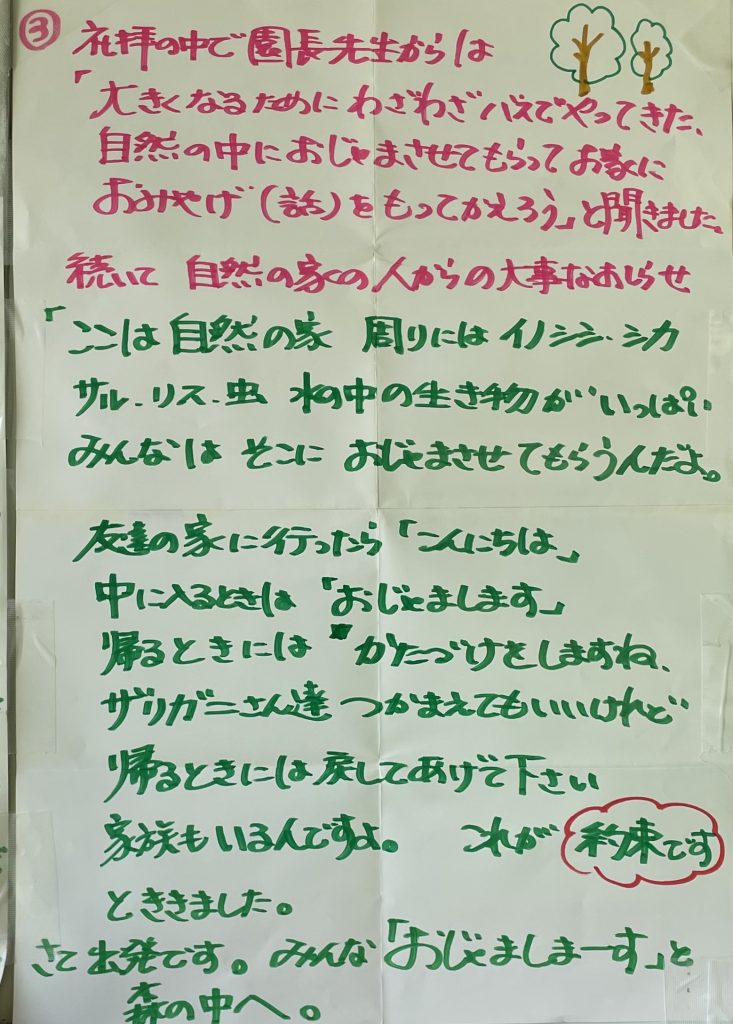 ③ 礼拝の中で園長先生からは
「大きくなるために わざわざ バスでやってきた、
自然の中におじゃまさせてもらって お家に
おみやげ(話)をもってかえろう」と聞きました。
続いて 自然の家の人からの大事なおしらせ
「ここは 自然の家 周りには イノシシ・シカ
サル・リス・虫 水の中の生き物が いっぱい
みんなは そこに おじゃまさせてもらうんだよ。
友達の家に行ったら「こんにちは」
中に入るときは「おじゃまします」
帰るときには かたづけをしますね、
ザリガニさん達 つかまえてもいいけれど
帰るときには戻してあげて下さい
家族もいるんですよ。 これが 約束です
とききました。
さて出発です。みんな「おじゃましまーす」と
森の中へ。